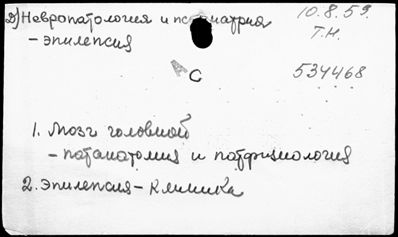 2) Невропатология и психиатрия
10.8.59.
Т.Н.
- эпилепсия
АС
534468
1. Мозг головной
- патанатомия и патфизиология
2. Эпилепсия - Клиника